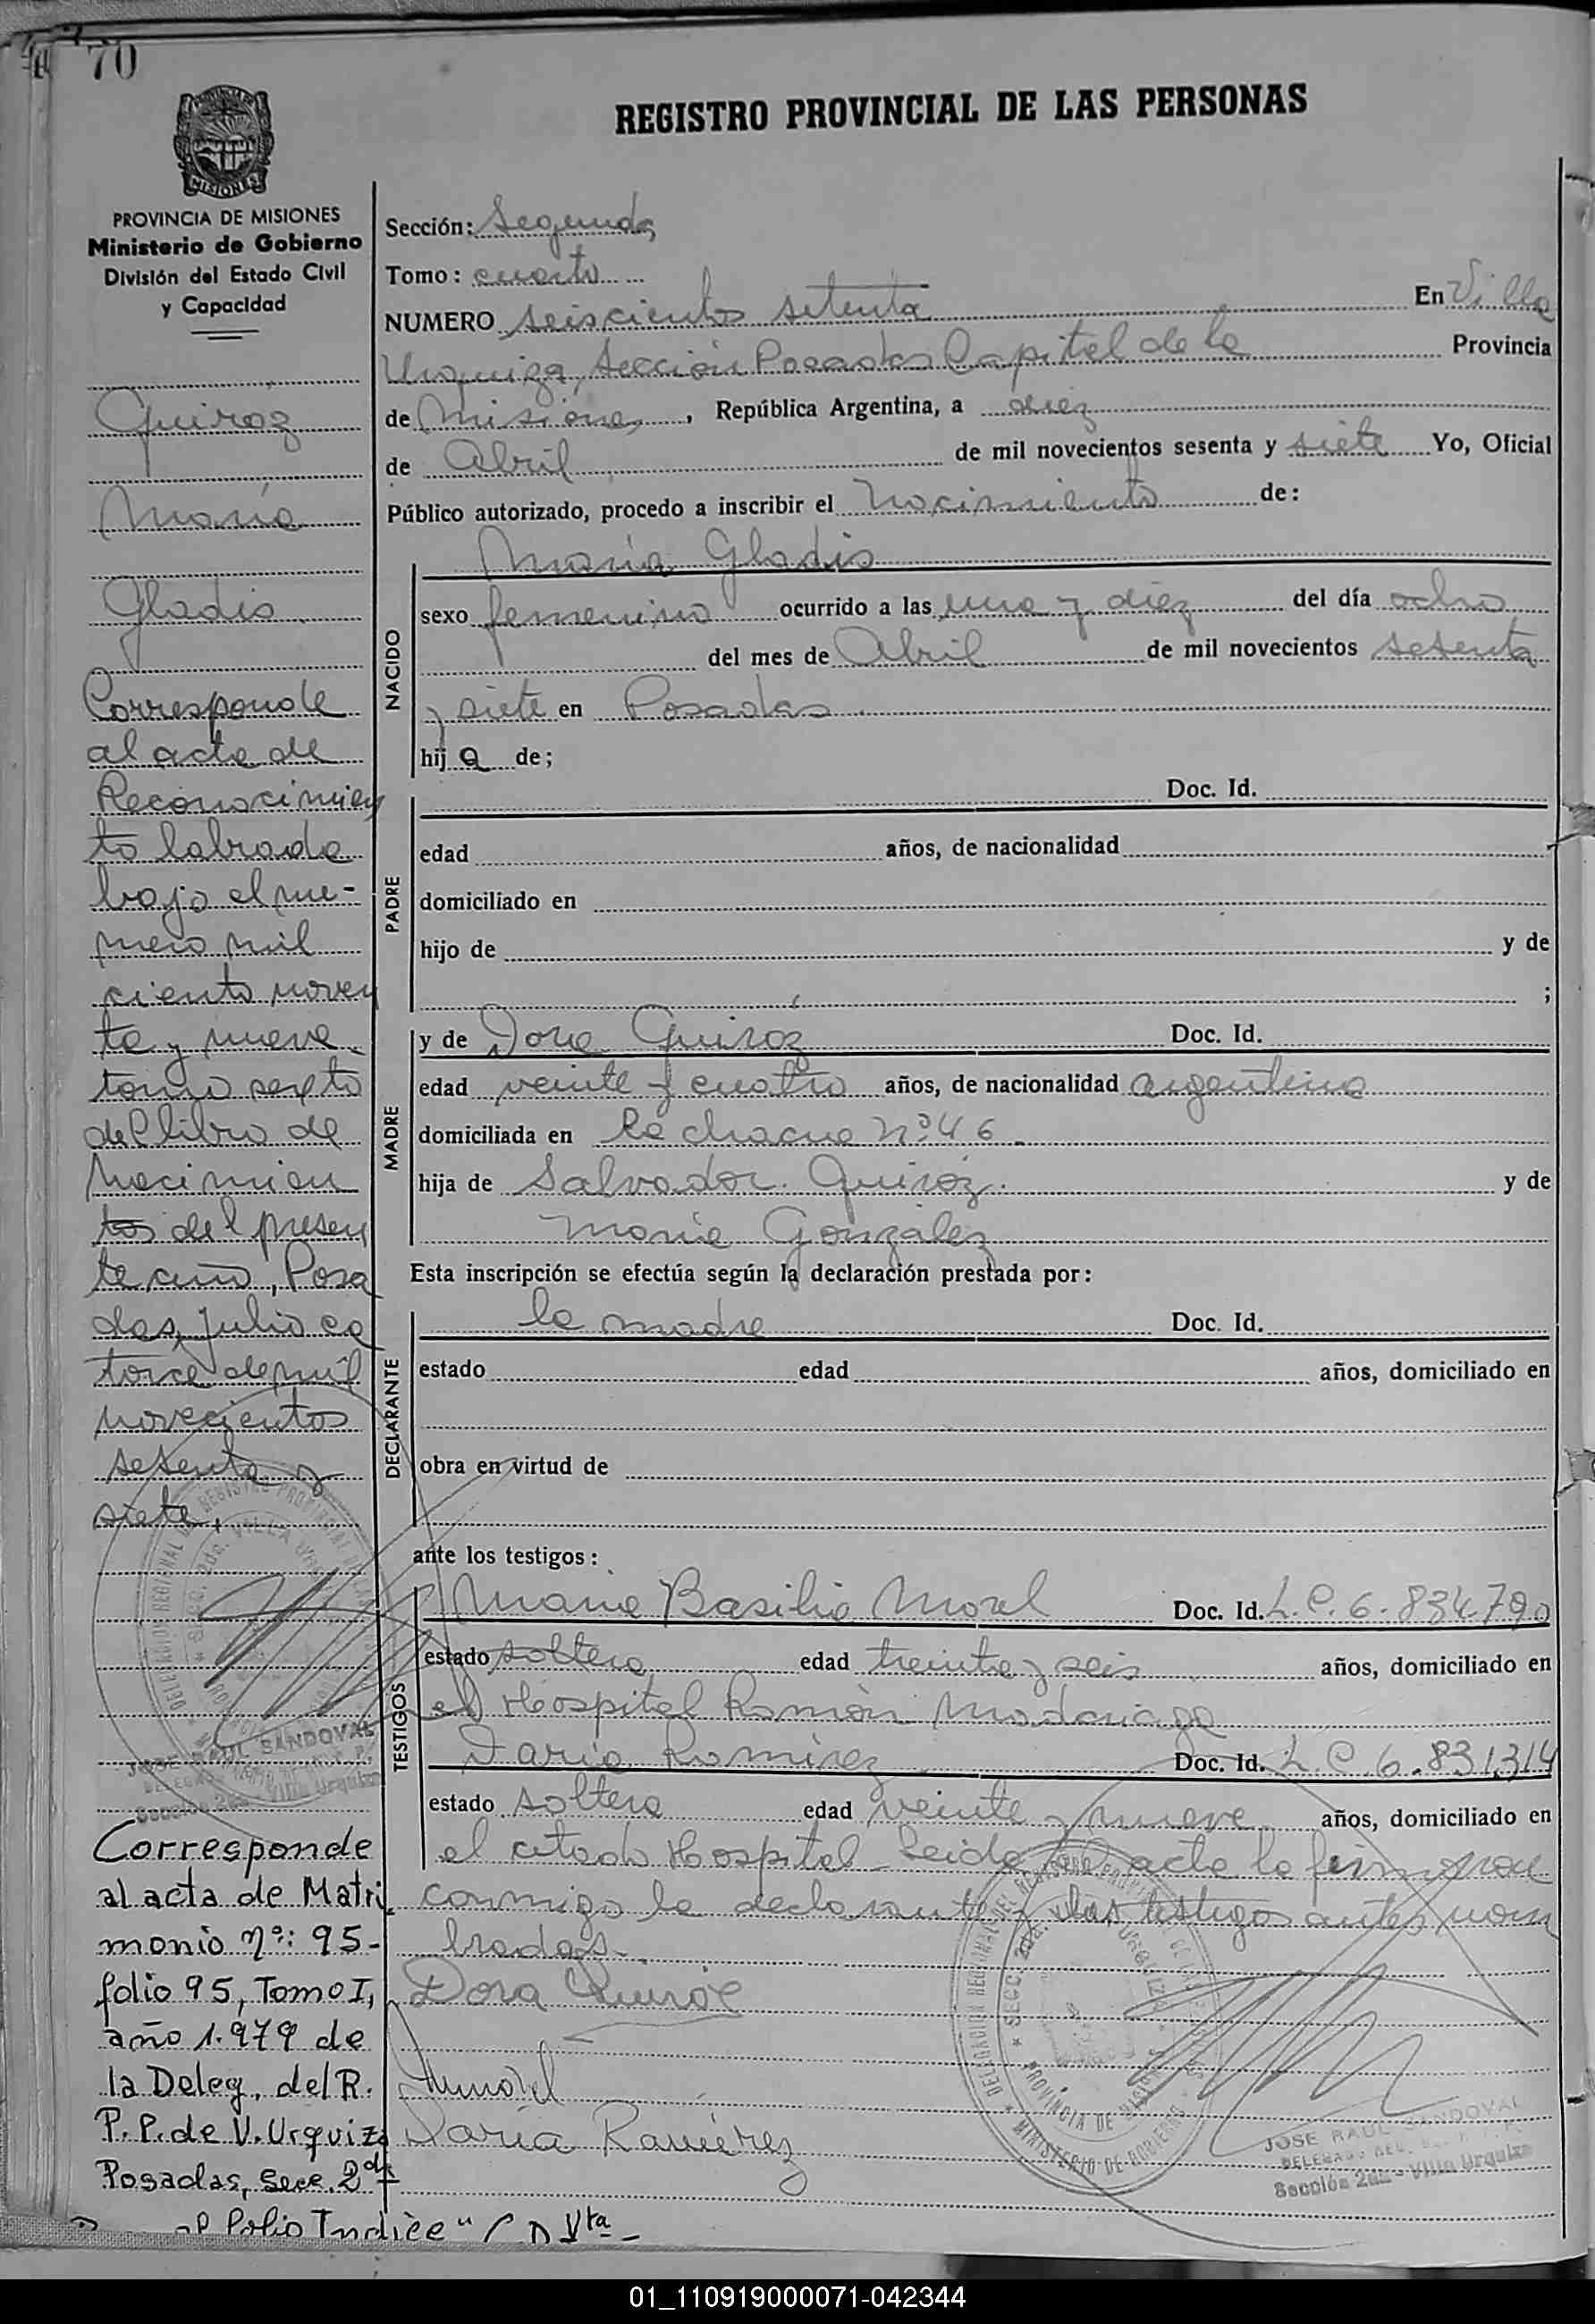 70
REGISTRO PROVINCIAL DE LAS PERSONAS
PROVINCIA DE MISIONES
Ministerio de Gobierno
División del Estado Civil
y Capacidad
Quiroz
María
Gladis
Corresponde
al acta de
Reconocimien
to labrada
bajo el nu-
mero mil
ciento noven
ta y nueve
tomo sexto
del libro de
Nacimien
tos del presen
te año, Posa
das, julio ca
torce de mil
novecientos
setenta y
siete.
JOSE RAUL SANDOVAL
Sección 2da - Villa Urquiza
Corresponde
al acta de Matri
monio nº: 95-
folio 95, Tomo I,
año 1.979 de
la Deleg. del R.
P.P. de V. Urquiza
Posadas, Secc. 2da
Sección: Segunda
Tomo: cuarto
NUMERO seiscientos setenta En Villa
Urquiza, Sección Posadas Capital de la Provincia
de Misiones, República Argentina, a diez
de Abril de mil novecientos sesenta y siete Yo, Oficial
Público autorizado, procedo a inscribir el nacimiento de:
NACIDO
María Gladis
sexo femenino ocurrido a las una y diez del día ocho
del mes de Abril de mil novecientos setenta
y siete en Posadas
hija de;
PADRE
Doc. Id.
edad años, de nacionalidad
domiciliado en
hijo de y de
;
MADRE
y de Dora Quiroz Doc. Id.
edad veinte y cuatro años, de nacionalidad argentina
domiciliada en la chacra nº 46
hija de Salvador Quiroz y de
María González
Esta inscripción se efectúa según la declaración prestada por:
DECLARANTE
la madre Doc. Id.
estado edad años, domiciliado en
obra en virtud de
ante los testigos:
TESTIGOS
María Basilia Morel Doc. Id. L.C. 6.834.790
estado soltera edad treinta y seis años, domiciliado en
el Hospital Ramón Madariaga
Daría Ramírez Doc. Id. L.C. 6.831.314
estado soltera edad veinte y nueve años, domiciliado en
el citado Hospital - Leida el acta la firman
conmigo la declarante y las testigos antes nom
bradas-
Dora Quiroz
Daría Ramírez
JOSE RAUL SANDOVAL
Sección 2da - Villa Urquiza
01_110919000071-042344